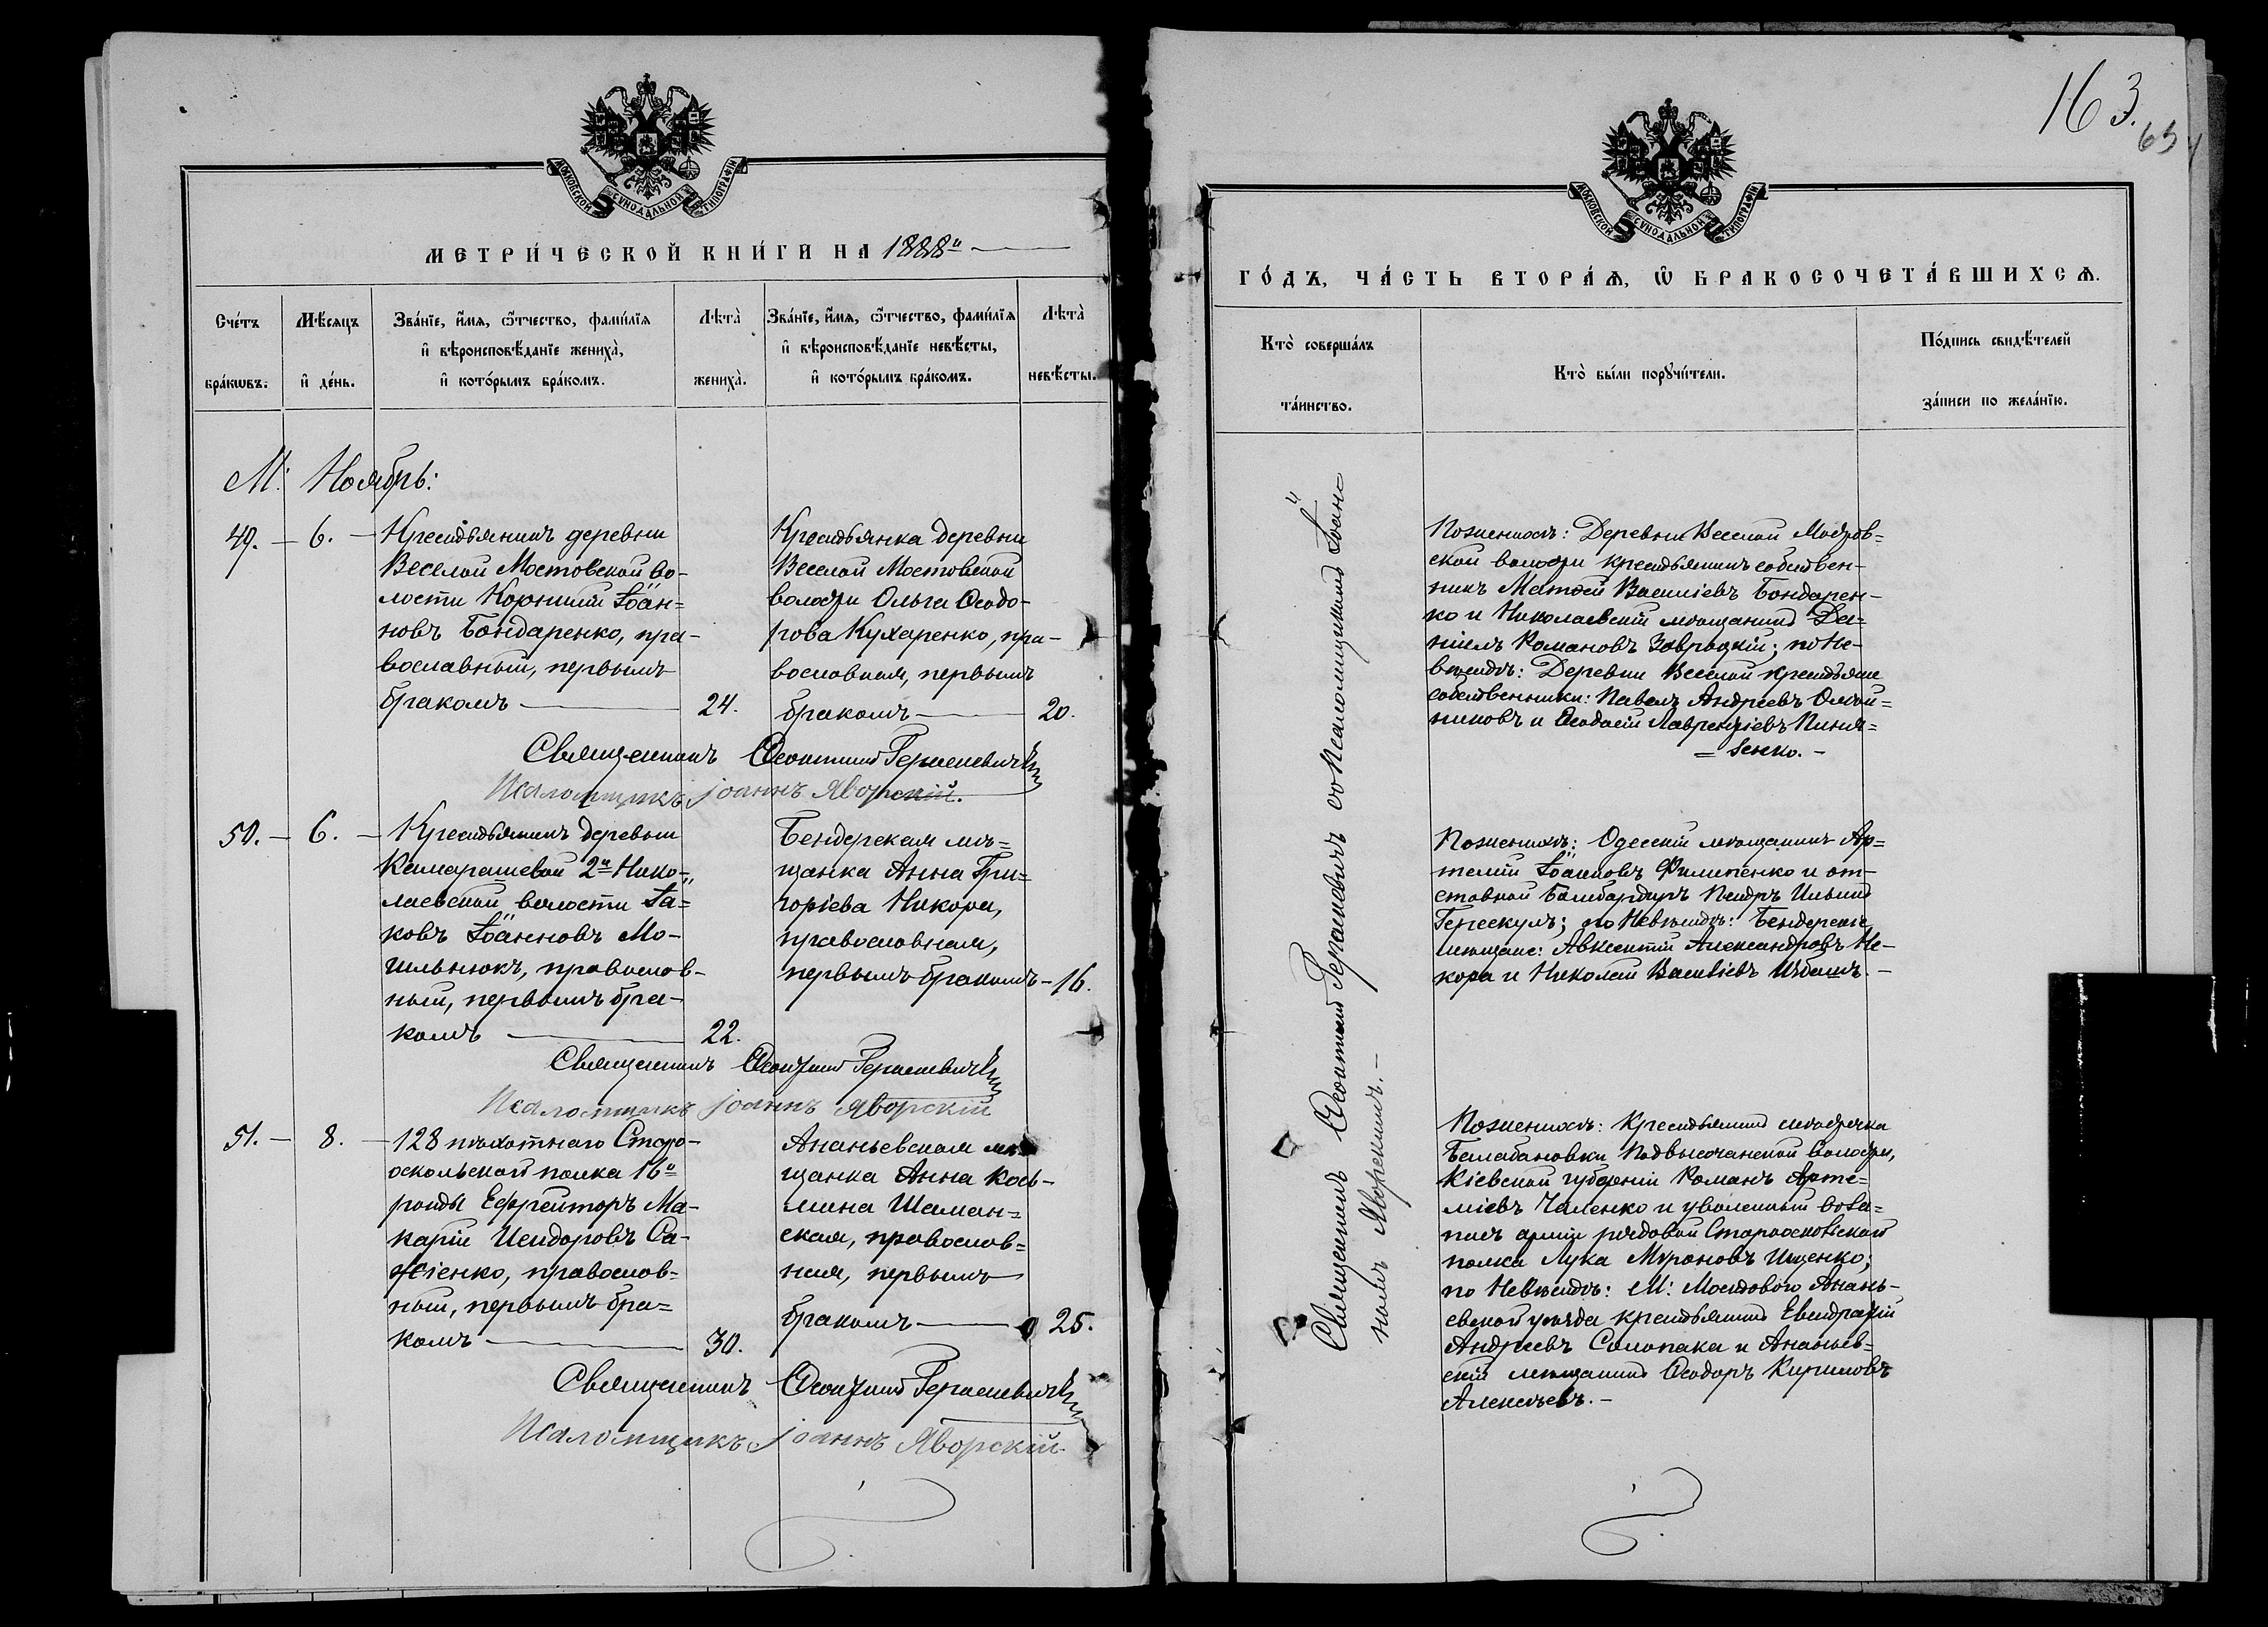 МОСКОВСКОЙ СѴНОДАЛЬНОЙ ТИПОГРАФІИ
МЕТРИ́ЧЕСКОЙ КНИ́ГИ НА 1888й
Сче́тъ бра́кѡвъ.
Мѣ́сяцъ и҆ де́нь.
Зва́нїе, и҆́мѧ, ѻ҆́тчество, фами́лїѧ
и҆ вѣроисповѣ́данїе жениха̀,
и҆ кото́рымъ бра́комъ.
Лѣта̀ жениха̀.
Зва́нїе, и҆́мѧ, ѻ҆́тчество, фами́лїѧ
и҆ вѣроисповѣ́данїе невѣ́сты,
и҆ кото́рымъ бра́комъ.
Лѣта̀ невѣ́сты.
М. Ноябрь:
49. — 6. — Крестьянинъ деревни
Веселой Мостовской во-
лости Корнилій Іоан=
новъ Бондаренко, пра-
вославный, первымъ
бракомъ — 24.
Крестьянка деревни
Веселой Мостовской
волости Ольга Ѳеодо-
рова Кухаренко, пра-
вославная, первымъ
бракомъ — 20.
Священникъ Ѳеоктистъ Герасевичъ
Псаломщикъ Іоаннъ Яворскій.
50. — 6. — Крестьянинъ деревни
Камарашевой 2й Нико-
лаевской волости Іа=
ковъ Іоанновъ Мо-
шльнюкъ, православ-
ный, первымъ бра-
комъ — 22.
Бендерская мѣ=
щанка Анна Гри=
горіева Никора,
православная,
первымъ бракомъ — 16.
Священникъ Ѳеоктистъ Герасевичъ
Псаломщикъ Іоаннъ Яворскій
51. — 8. — 128 пѣхотнаго Старо-
оскольскаго полка 16й
роты Ефрейторъ Ма-
карій Исидоровъ Са-
, православ=
ный, первымъ бра=
комъ — 30.
Ананьевская мѣ
щанка Анна Кось-
мина Шаман=
ская, православ=
ная, первымъ
бракомъ — 25.
Священникъ Ѳеоктистъ Герасевичъ
Псаломщикъ Іоаннъ Яворскій
163.
МОСКОВСКОЙ СѴНОДАЛЬНОЙ ТИПОГРАФІИ
ГО́ДЪ, ЧА́СТЬ ВТОРА́Ѧ, Ѡ҆ БРАКОСОЧЕТА́ВШИХСѦ.
Кто̀ соверша́лъ
та́инство.
Кто̀ бы́ли порꙋчи́тели.
По́дпись свидѣ́телей
за́писи по жела́нїю.
Священникъ Ѳеоктистъ Герасевичъ со Псаломщикомъ Іоан=
номъ Яворскимъ. —
По женихѣ: Деревни Веселой Мостов=
ской волости крестьянинъ собствен-
никъ Матѳей Василіевъ Бондарен-
ко и Николаевскій мѣщанинъ Да=
ніилъ Романовъ Завроцкій; по Не-
вѣстѣ: Деревни Веселой крестьяне
собственники: Павелъ Андреевъ Олой=
никовъ и Ѳеодосій Лаврентіевъ
По женихѣ: Одесскій мѣщанинъ Ар=
темій Іоанновъ Филипенко и от-
ставной Бомбардиръ Петръ Ильинъ
Герескулъ; по Невѣстѣ: Бендерскіе
мѣщане: Авксентій Александровъ Не-
кора и Николай Василіевъ —
По женихѣ: Крестьянинъ мѣстечка
Балабановки Подвысочанской волости,
Кіевской губерніи Романъ Арте=
міевъ Чаленко и уволенный въ за=
пасъ арміи рядовой Старооскольскаго
полка Лука Мироновъ Ищенко;
по Невѣстѣ: М. Мостоваго Анань-
евскаго уѣзда крестьянинъ Евстратій
Андреевъ Солопака и Ананьев=
скій мѣщанинъ Ѳеодоръ Кириловъ
Алексѣевъ. —